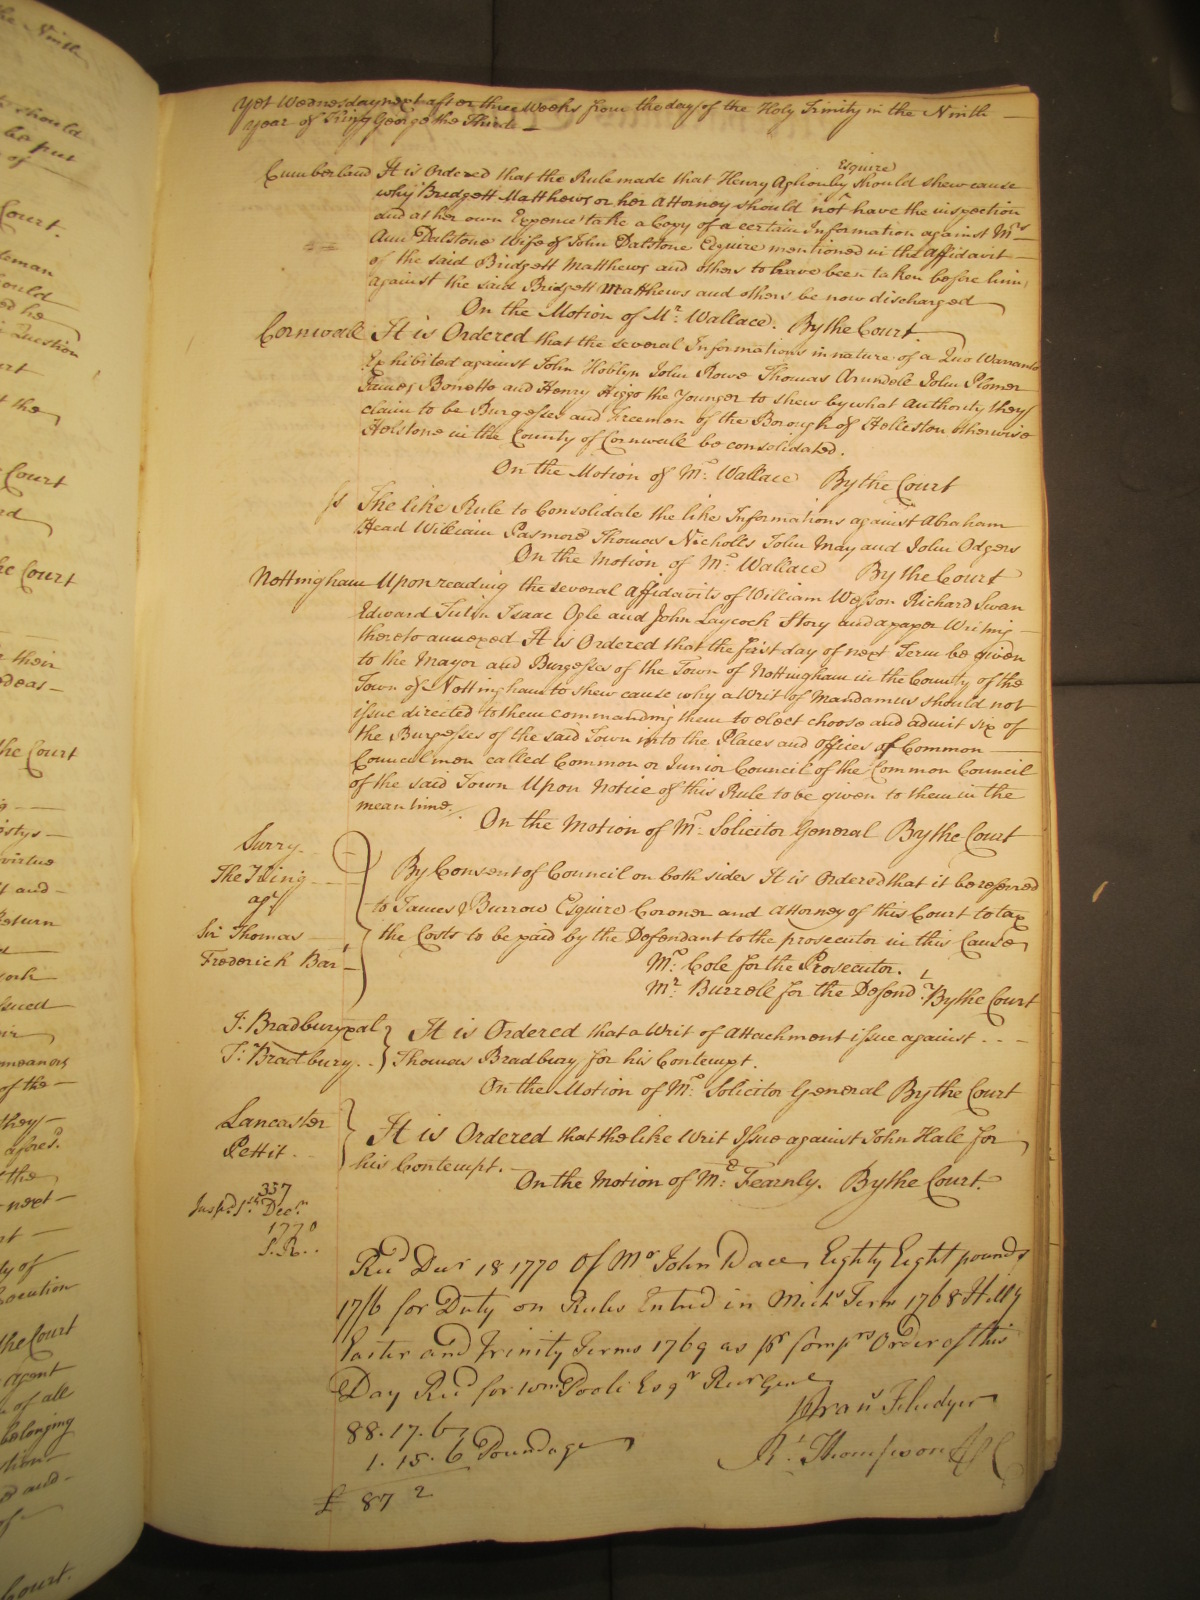 Yet Wednesday next after three Weeks from the day of the Holy Trinity in the Ninth
year of King George the Third
Cumberland It is Ordered that the Rule made that Henry Aglionby Esquire should shew cause
why Bridgett Matthews or her Attorney should not have the inspection
and at her own Expence take a Copy of a certain Information against Mrs
Ann Dalstone Wife of John Dalstone Esquire mentioned in the affidavit
of the said Bridgett Matthews and others to have been taken before him
against the said Bridgett Matthews and others be now discharged
On the Motion of Mr. Wallace. By the Court
Cornwall It is Ordered that the several Informations in nature of a Quo Warranto
Exhibited against John Hoblyn John Rowe Thomas Arundele John Plomer
James Bonetto and Henry Higgo the Younger to shew by what authority they
claim to be Burgesses and Freemen of the Borough of Helleston otherwise
Helstone in the County of Cornwall be consolidated.
On the Motion of Mr. Wallace By the Court
ss The like Rule to Consolidate the like Informations against Abraham
Head William Pasmore Thomas Nicholls John May and John Odgers
On the Motion of Mr. Wallace By the Court
Nottingham Upon reading the several affidavits of William Wesson Richard Swan
Edward Tutin Isaac Ogle and John Laycock Story and a paper Writing
thereto annexed It is Ordered that the first day of next Term be given
to the Mayor and Burgesses of the Town of Nottingham in the County of the
Town of Nottingham to shew cause why a Writ of Mandamus should not
issue directed to them commanding them to elect choose and admit six of
the Burgesses of the said Town into the Places and offices of Common
Councilmen called Common or Junior Council of the Common Council
of the said Town Upon Notice of this Rule to be given to them in the
mean time.
On the Motion of Mr. Solicitor General By the Court
Surry
The King
agt
Sir Thomas
Frederick Bart
By Consent of Council on both sides It is Ordered that it be referred
to James Burrow Esquire Coroner and Attorney of this Court to tax
the Costs to be paid by the Defendant to the prosecutor in this Cause
Mr. Cole for the Prosecutor.
Mr. Burrell for the Defendt. By the Court
J. Bradbury
T. Bradbury
It is Ordered that a Writ of Attachment issue against
Thomas Bradbury for his Contempt.
On the Motion of Mr. Solicitor General By the Court
Lancaster
Pettit
It is Ordered that the like Writ Issue against John Hale for
his Contempt.
On the Motion of Mr. Fearnly. By the Court.
357
Insp. 1st. Decr.
1770
Recd Decr 18 1770 Of Mr John Dace Eighty Eight pounds
17/6 for Duty on Rules Entred in Michs Term 1768 Hilly
Easter and Trinity Terms 1769 as pr Comprs Order of this
Day Recd for Wm Poole Esqr Recr Genl
88.17.6
1.15.6 Poundage
£ 87 2
Frans Fludyer
Rt. Thompson